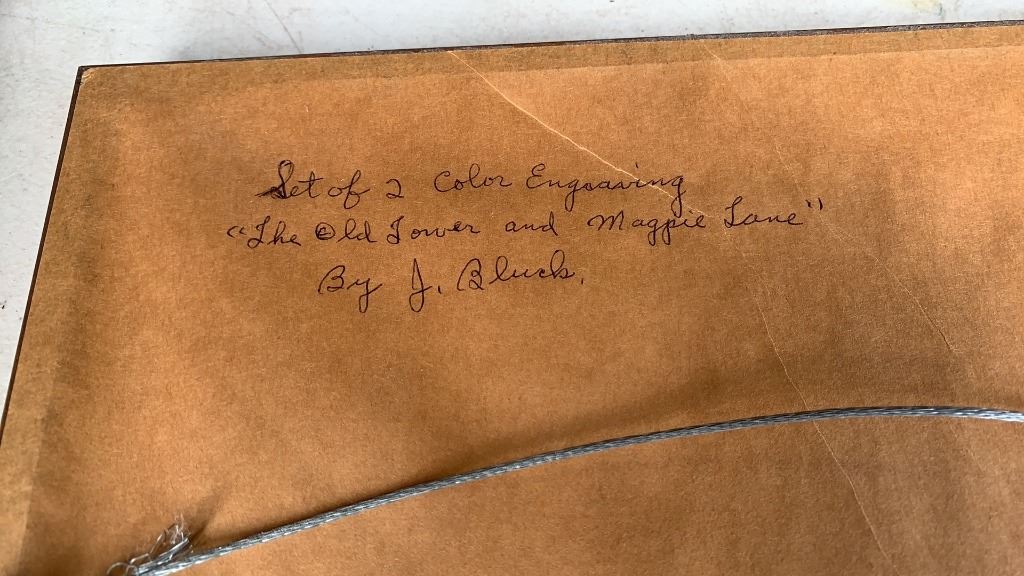 Set of 2 Color Engraving
"The Old Tower and Magpie Lane"
By J. Bluck.